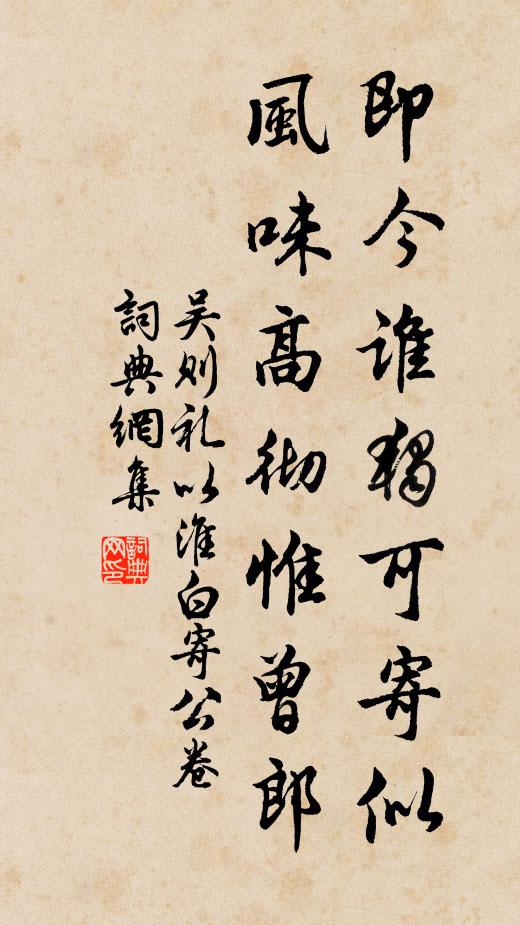 即今谁獨可寄似
風味高彻惟曾郎
吴则礼以淮白寄公卷
詞典網集
詞典網印